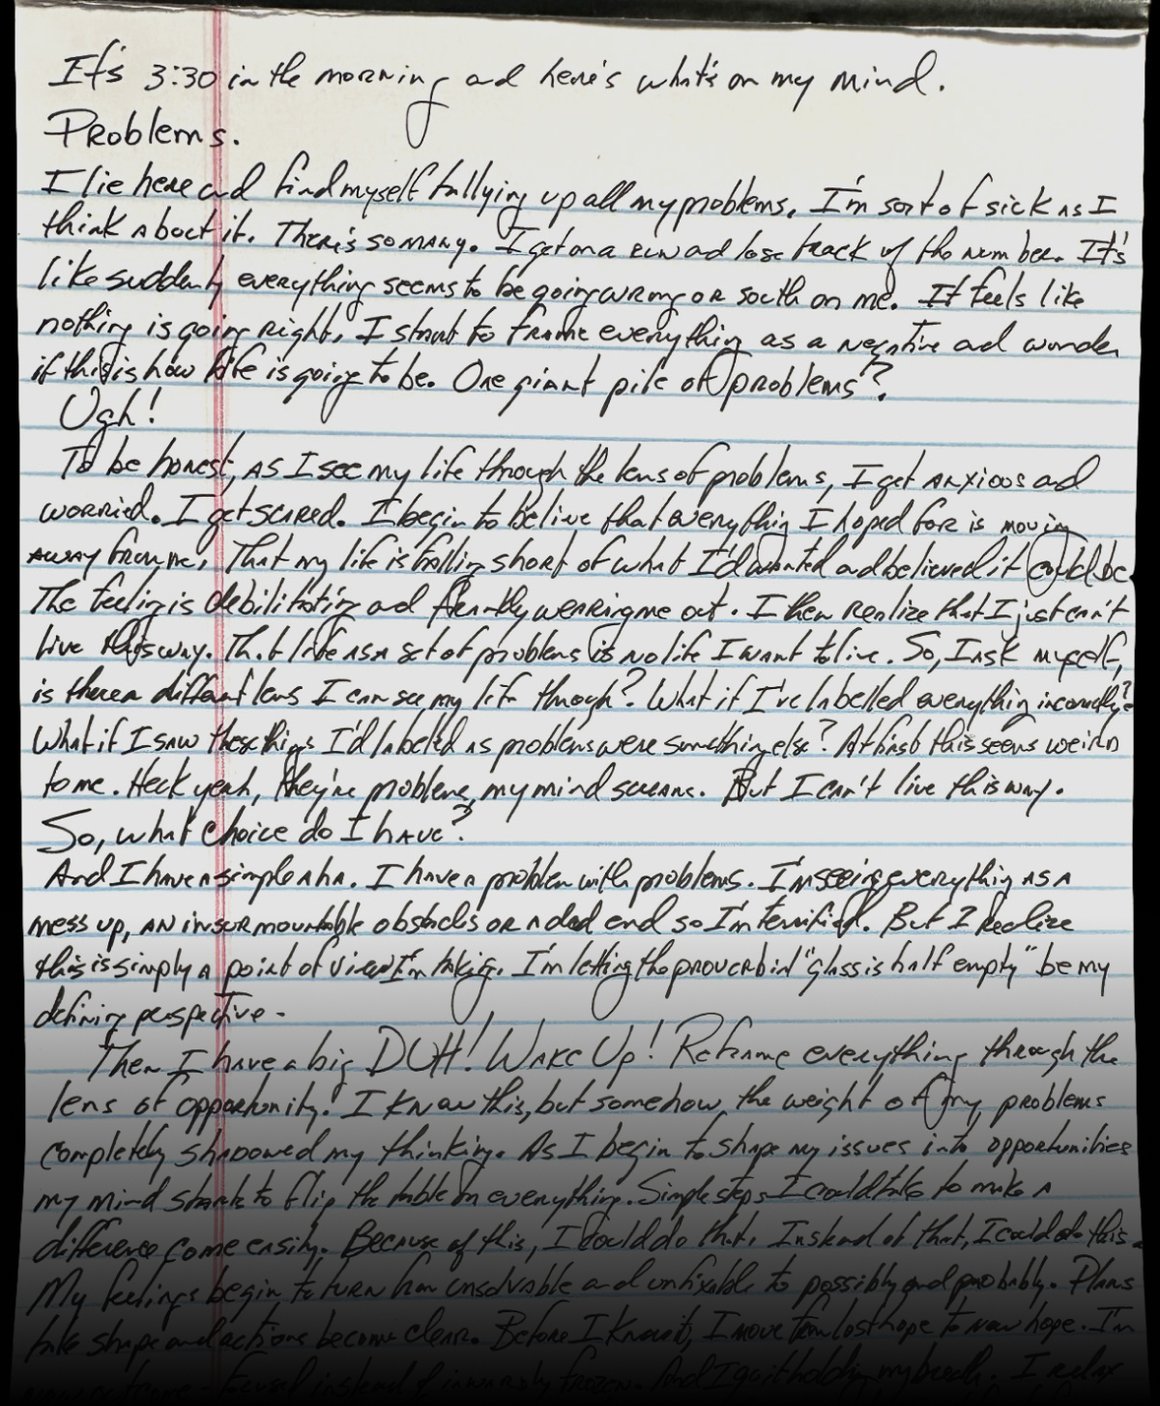 It's 3:30 in the morning and here's what's on my mind.
Problems.
I lie here and find myself tallying up all my problems. I'm sort of sick as I
think about it. There's so many. I get on a run and lose track of the number. It's
like suddenly everything seems to be going wrong or south on me. It feels like
nothing is going right. I start to frame everything as a negative and wonder
if this is how life is going to be. One giant pile of problems?
Ugh!
To be honest, as I see my life through the lens of problems, I get anxious and
worried. I get scared. I begin to believe that everything I hoped for is moving
away from me. That my life is falling short of what I'd wanted and believed it could be.
The feeling is debilitating and frankly wearing me out. I then realize that I just can't
live this way. That life as a set of problems is no life I want to live. So, I ask myself,
is there a different lens I can see my life through? What if I've labelled everything incorrectly?
What if I saw these things I'd labeled as problems were something else? At first this seems weird
to me. Heck yeah, they're problems, my mind screams. But I can't live this way.
So, what choice do I have?
And I have a simple aha. I have a problem with problems. I'm seeing everything as a
mess up, an insurmountable obstacle or a dead end so I'm terrified. But I realize
this is simply a point of view I'm taking. I'm letting the proverbial "glass is half empty" be my
defining perspective.
Then I have a big DUH! Wake Up! Reframe everything through the
lens of opportunity! I know this, but somehow the weight of my problems
completely shadowed my thinking. As I begin to shape my issues into opportunities
my mind starts to flip the table on everything. Simple steps I could take to make a
difference come easily. Because of this, I could do that. Instead of that, I could do this.
My feelings begin to turn from unsolvable and unfixable to possibly and probably. Plans
take shape and actions become clear. Before I know it, I move from lost hope to new hope. I'm
focused instead of inwardly frozen. And I quit holding my breath. I relax